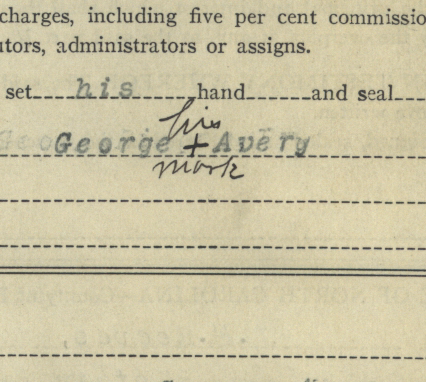 charges, including five per cent commissio
utors, administrators or assigns.
set his hand and seal
his
George + Avery
mark
OF NORTH CAROLINA